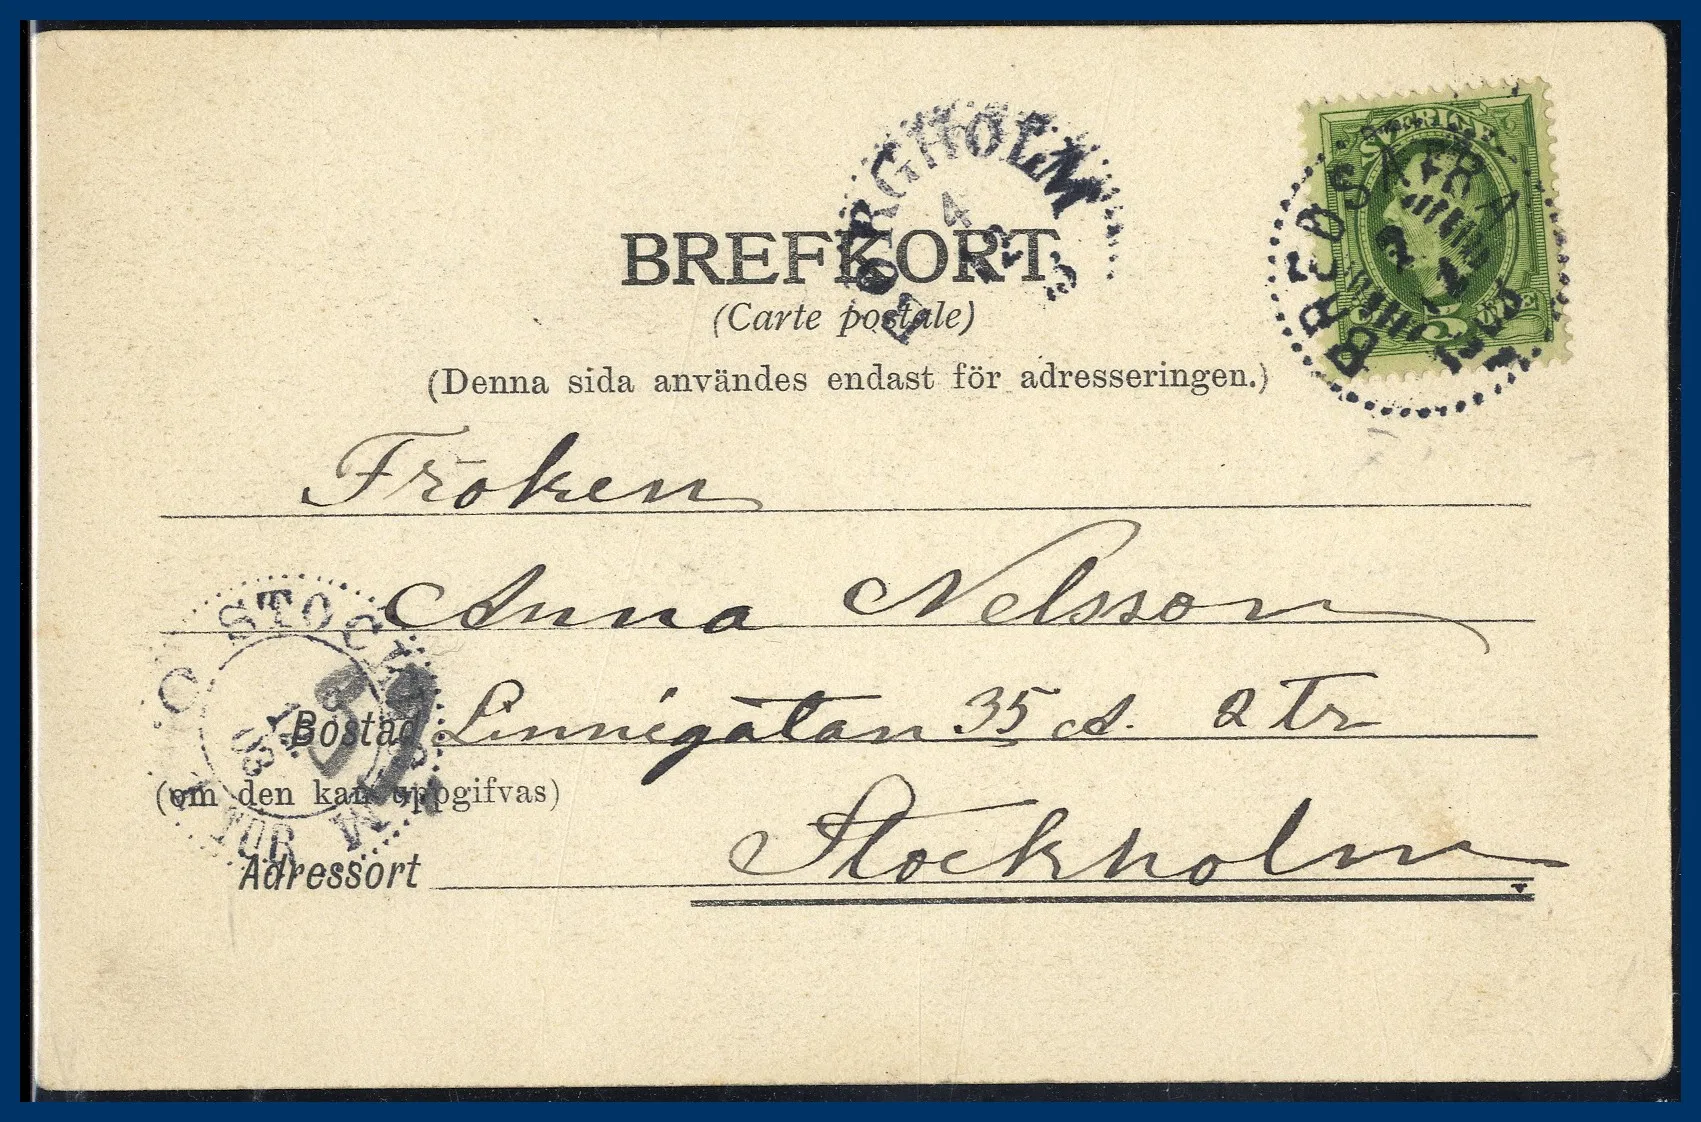 BORGHOLM
4
SVERIGE
BREDSÄTRA
2 1
1903
5
BREFKORT
(Carte postale)
(Denna sida användes endast för adresseringen.)
Fröken
Anna Nelsson
Bostad Linnégatan 35 A. 2 Tr
(om den kan uppgifvas)
Adressort Stockholm
STOCKHOLM
1 TUR
57